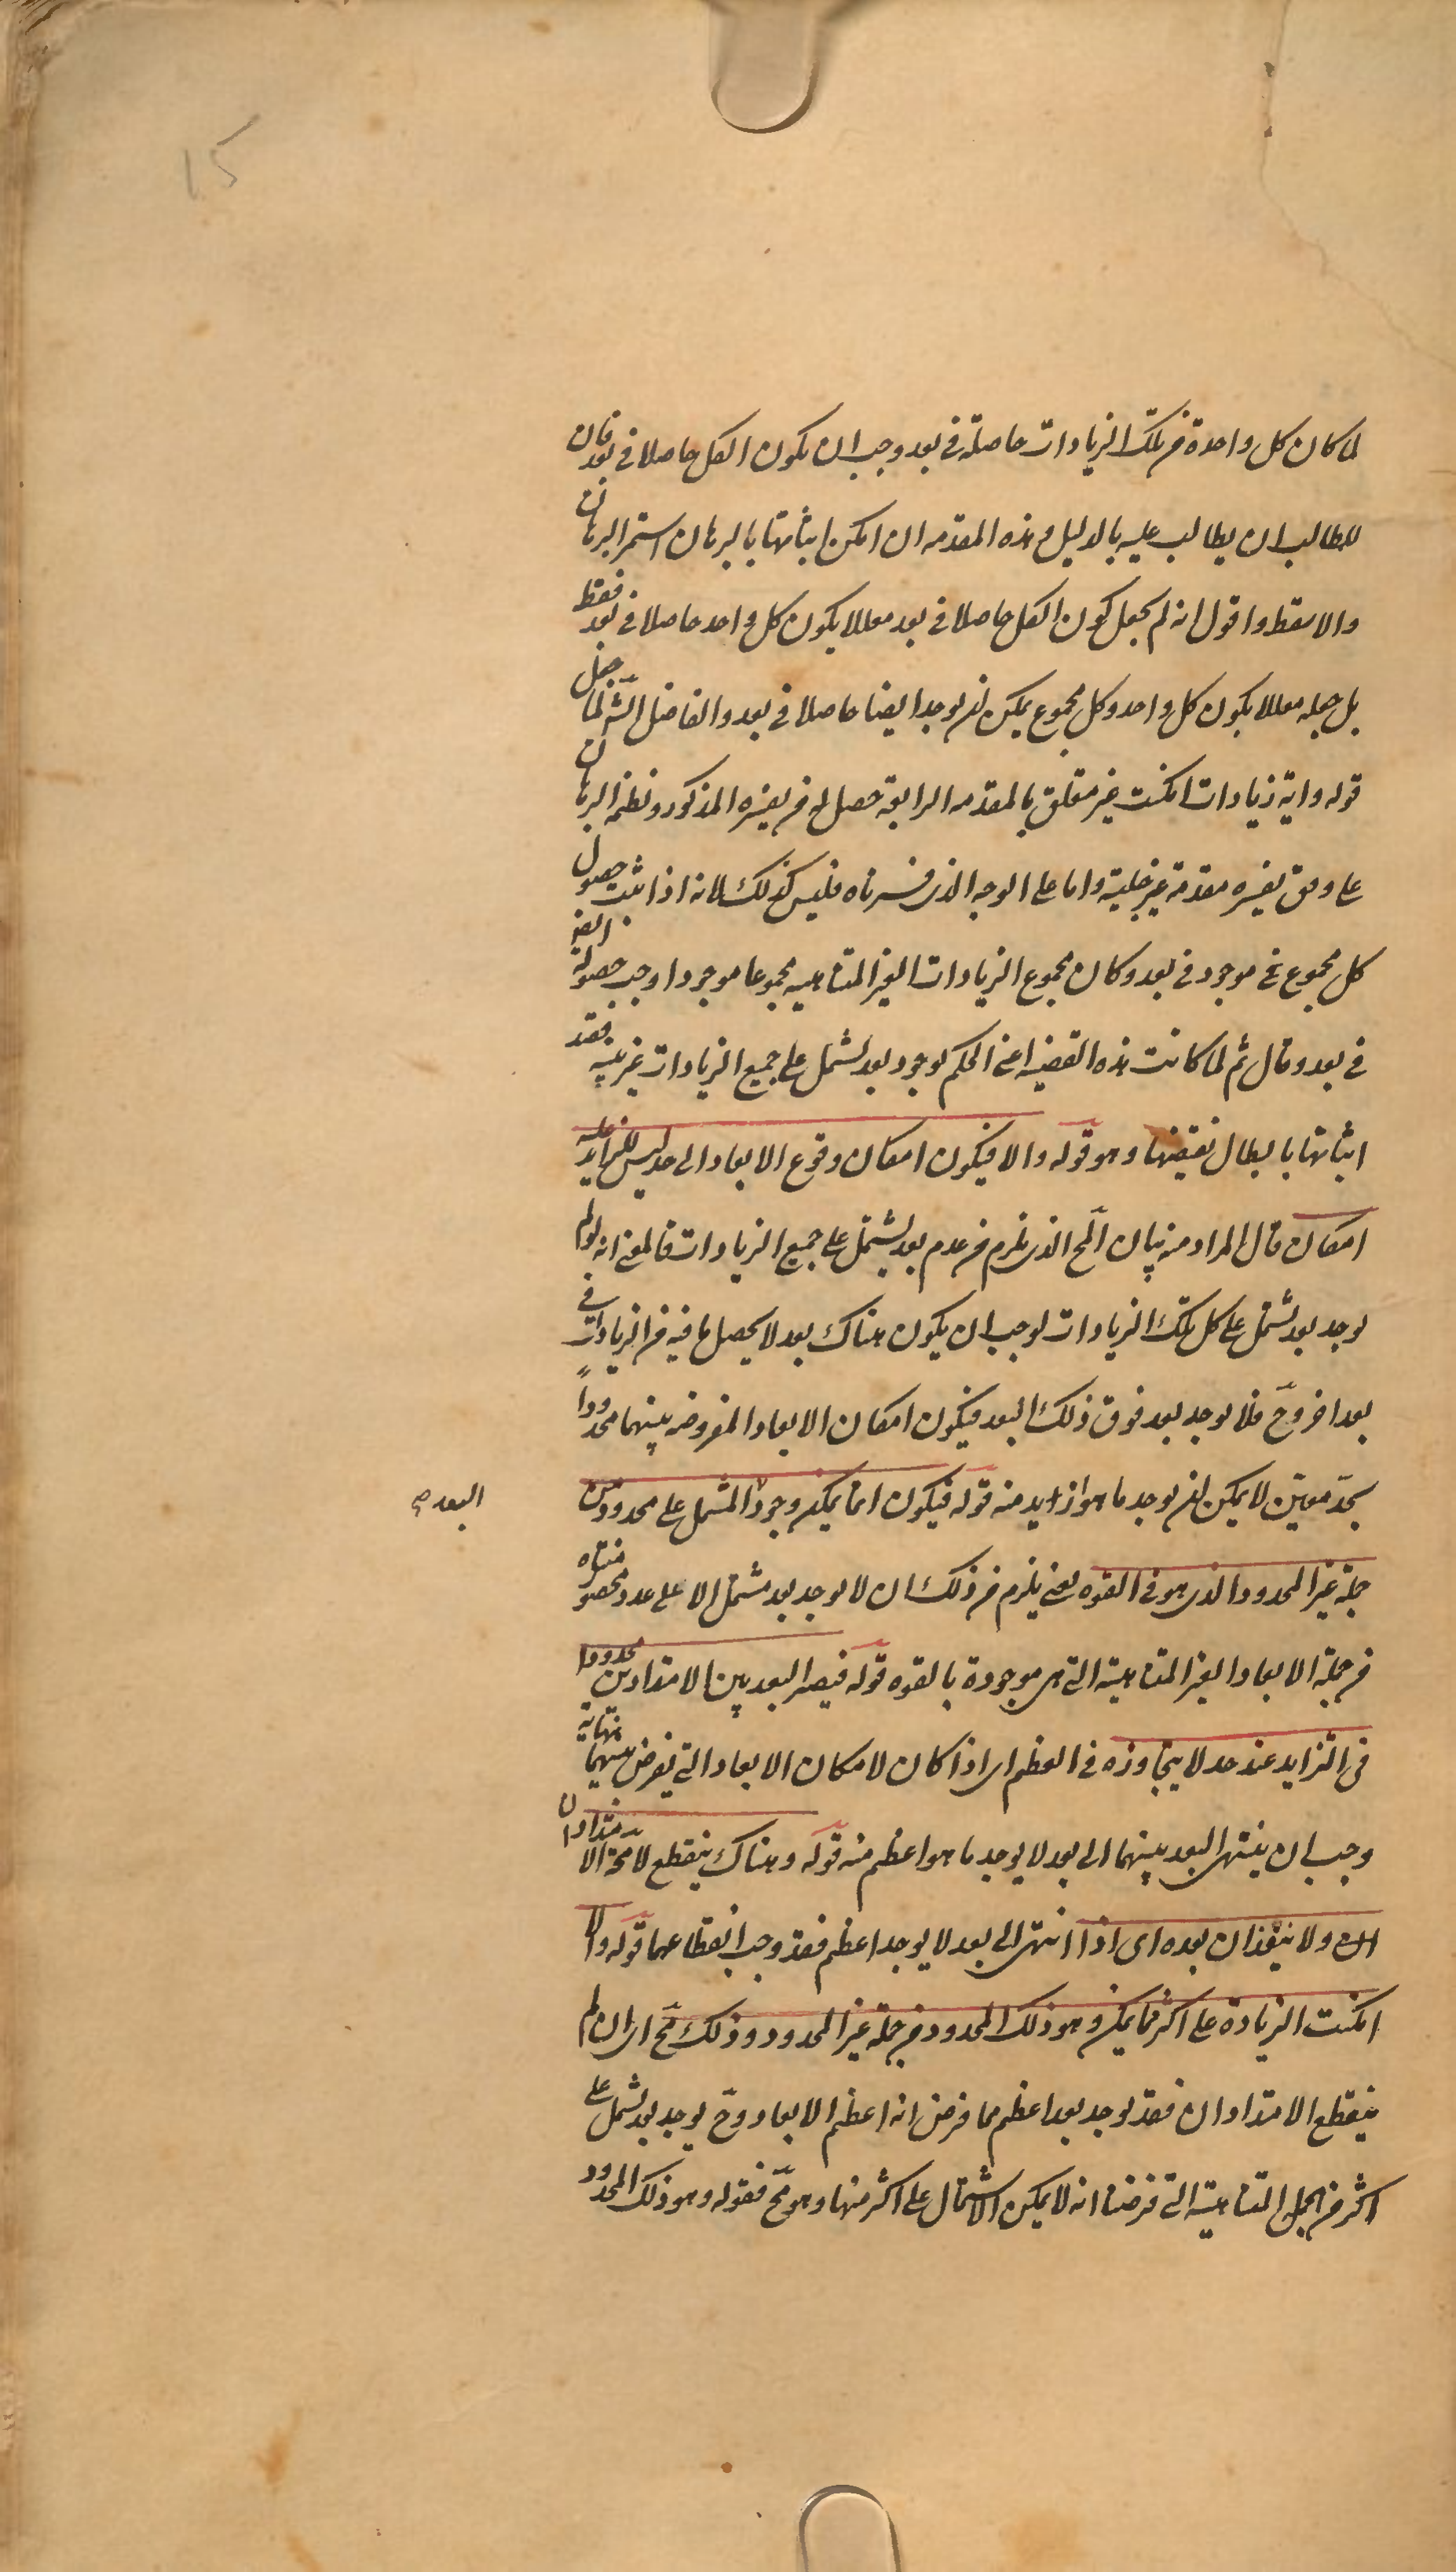 15
لما كان كل واحدة من تلك الزيادات حاصلة في بعد وجب ان يكون الكل حاصلا في بعد فان
للطالب ان يطالب عليه بالدليل وهذه المقدمه ان امكن اثباتها بالبرهان استمر البرهان
والا سقط واقول انه لم يجعل كون الكل حاصلا في بعد معللا بكون كل واحد حاصلا في بعد فقط
بل جعله معللا بكون كل واحد وكل مجموع يمكن ان يوجد ايضا حاصلا في بعد والفاضل الشارح لما جعل
قوله واية زيادات امكنت غير متعلق بالمقدمه الرابعة حصل له من تفسيره المذكور ونظمه البرهان
على وفق تفسيره مقدمة غير جلية واما على الوجه الذى فسرناه فليس كذلك لانه اذا ثبت حصول
كل مجموع موجود في بعد وكان مجموع الزيادات الغير المتناهيه مجموعا موجودا وجب حصوله
في بعد وقال ثم لما كانت هذه القضيه اعنى الحكم بوجود بعد يشتمل على جميع الزيادات غير بينه فقد
اثباتها بابطال نقيضها وهو قوله والا فيكون امكان وقوع الابعاد الى حد ليس للزايد عليه
امكان قال المراد منه بيان المح الذى يلزم من عدم بعد يشتمل على جميع الزيادات فالمعنى انه لو لم
يوجد بعد يشتمل على كل تلك الزيادات لوجب ان يكون هناك بعد لا يحصل ما فيه من الزيادات في
بعد اخر وح فلا يوجد بعد فوق ذلك البعد فيكون امكان الابعاد المفروضه بينهما محدودا
بحد معين لا يمكن ان يوجد ما هو ازايد منه قوله فيكون انما يمكن وجود المشتمل على محدود من
البعد صح
جملة غير المحدود الذى هو في القوه يعنى يلزم من ذلك ان لا يوجد بعد مشتمل الا على عدد محصور متناه
من جملة الابعاد الغير المتناهية التى هى موجودة بالقوه قوله فيصير البعد بين الامتدادين محدودا
فى التزايد عند حد لا يتجاوزه في العظم اى اذا كان لامكان الابعاد التى يفرض بينهما نهاية
وجب ان ينتهى البعد بينهما الى بعد لا يوجد ما هو اعظم منه قوله وهناك ينقطع لا محة الامتدادان
ولا ينفذان بعده اى اذا انتهى الى بعد لا يوجد اعظم فقد وجب انقطاعهما قوله والا
امكنت الزيادة على اكثر مما يمكن وهو ذلك المحدود من جملة غير المحدود وذلك مح اى ان لم
ينقطع الامتدادان فقد يوجد بعد اعظم مما فرض انه اعظم الابعاد وح يوجد بعد يشتمل على
اكثر من الجمل المتناهية التى فرضنا انه لا يمكن الاشتمال على اكثر منها وهو مح فقوله وهو ذلك المحدود